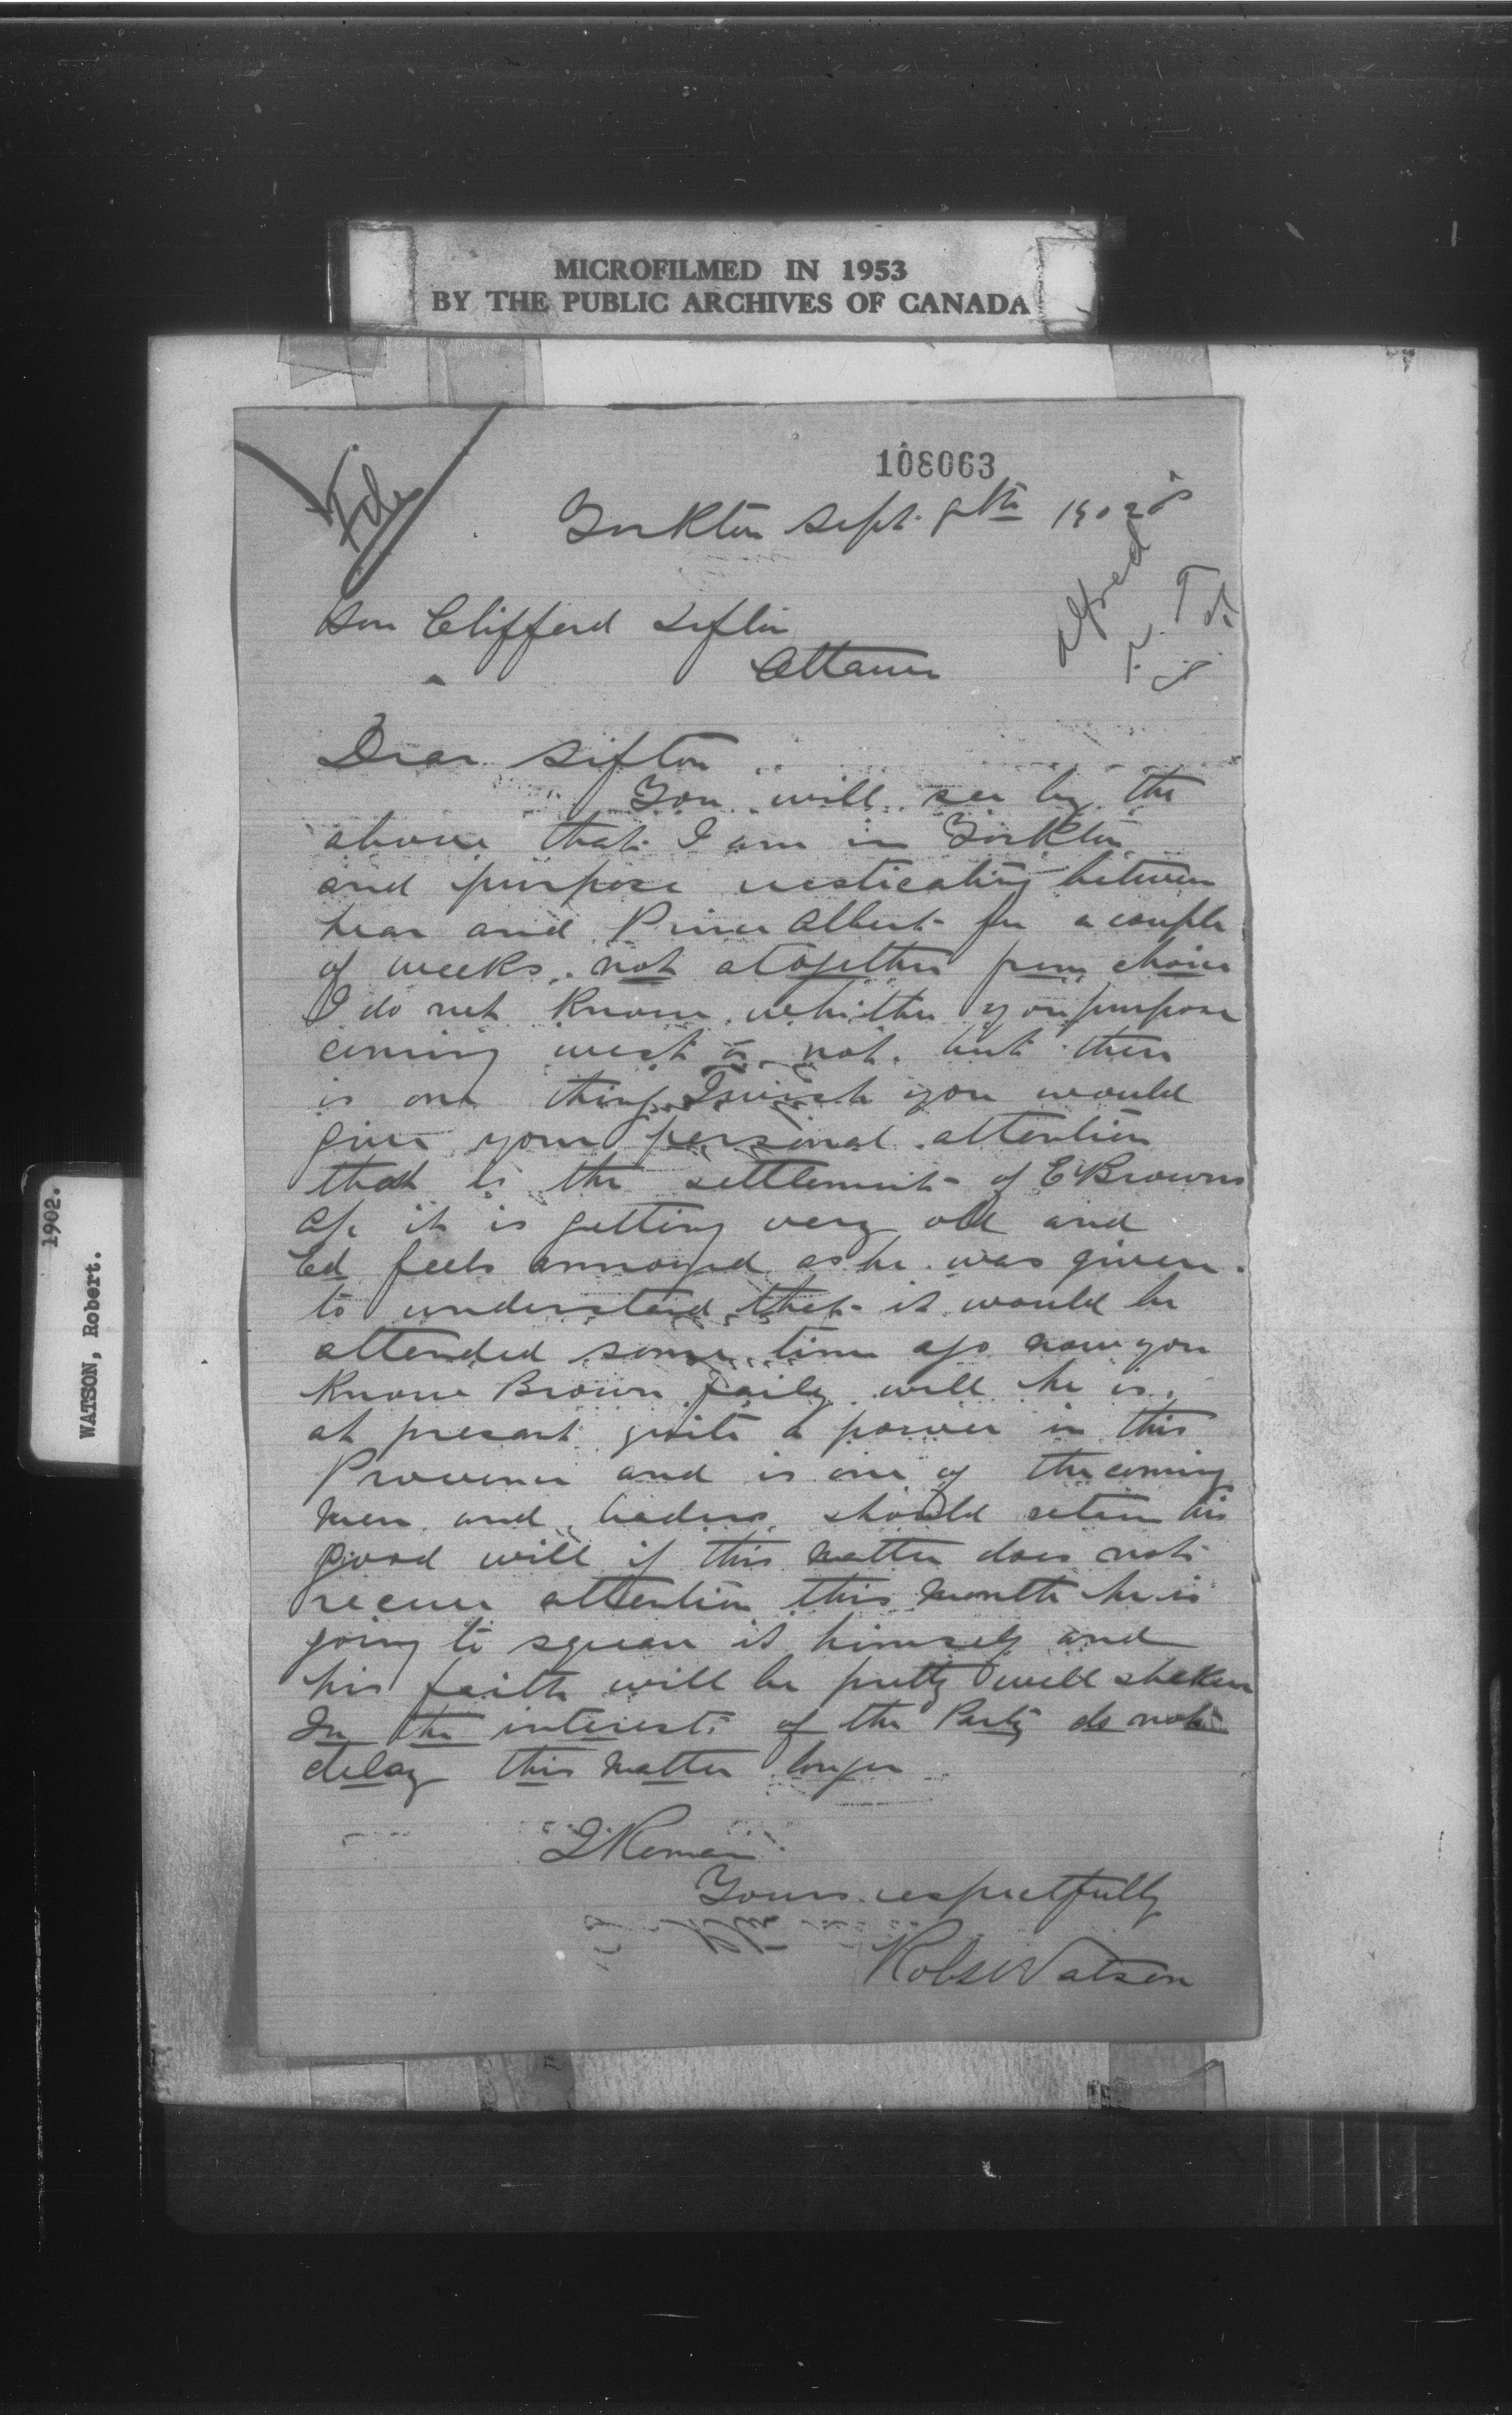 MICROFILMED IN 1953
BY THE PUBLIC ARCHIVES OF CANADA
108063
File
Yorkton Sept. 9th 1902
Alfred
Hon Clifford Sifton
Ottawa
Dear Sifton
You will see by the
above that I am in Yorkton
and purpose between
hear and Prince Albert for a couple
of weeks. not atogether from choice
I do not know whither you purpose
coming west or not. but there
is one thing I wish you would
give your personal attention
that is the settlement of E Browns
a/c it is getting very old and
Ed feels annoyed as he was given
to understand that it would be
attended some time ago now you
know Brown faily will he is
at present quite a power in this
Province and is one of the coming
men and leaders should retain his
good will if this matter does not
receive attention this month he is
going to square it himself and
his faith will be pretty well shaken
In the interest of the Party do not
delay this matter longer
I Remain
Yours respectfully
Robt Watson
1902.
WATSON, Robert.